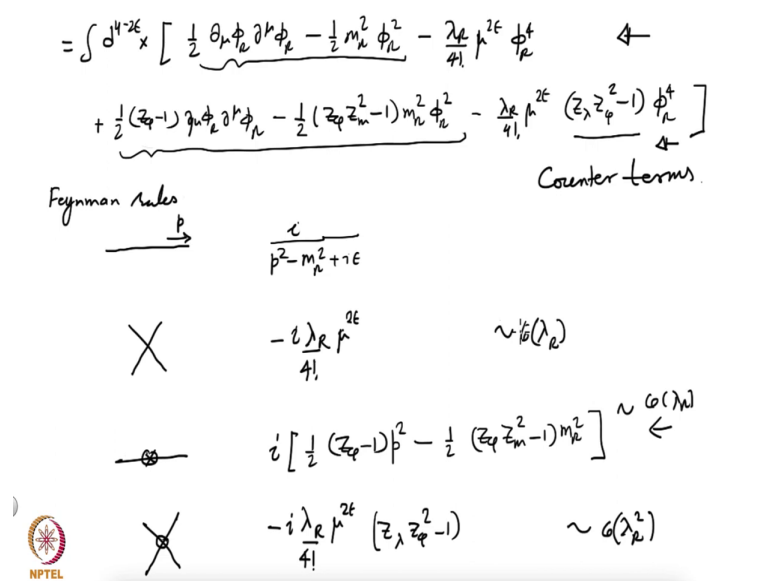 = ∫ d^{4-2ε}x [ ½ ∂_μ φ_R ∂^μ φ_R − ½ m_R² φ_R² − λ_R/4! μ^{2ε} φ_R⁴ ←
+ ½ (Z_φ−1) ∂_μ φ_R ∂^μ φ_R − ½ (Z_φ Z_m² −1) m_R² φ_R² − λ_R/4! μ^{2ε} (Z_λ Z_φ² −1) φ_R⁴ ]
Counter terms.
Feynman rules
p → i / (p² − m_R² + iε)
−i λ_R/4! μ^{2ε} ~ O(λ_R)
i [ ½ (Z_φ−1) p² − ½ (Z_φ Z_m² −1) m_R² ] ~ O(λ_R) ←
−i λ_R/4! μ^{2ε} (Z_λ Z_φ² −1) ~ O(λ_R²)
NPTEL